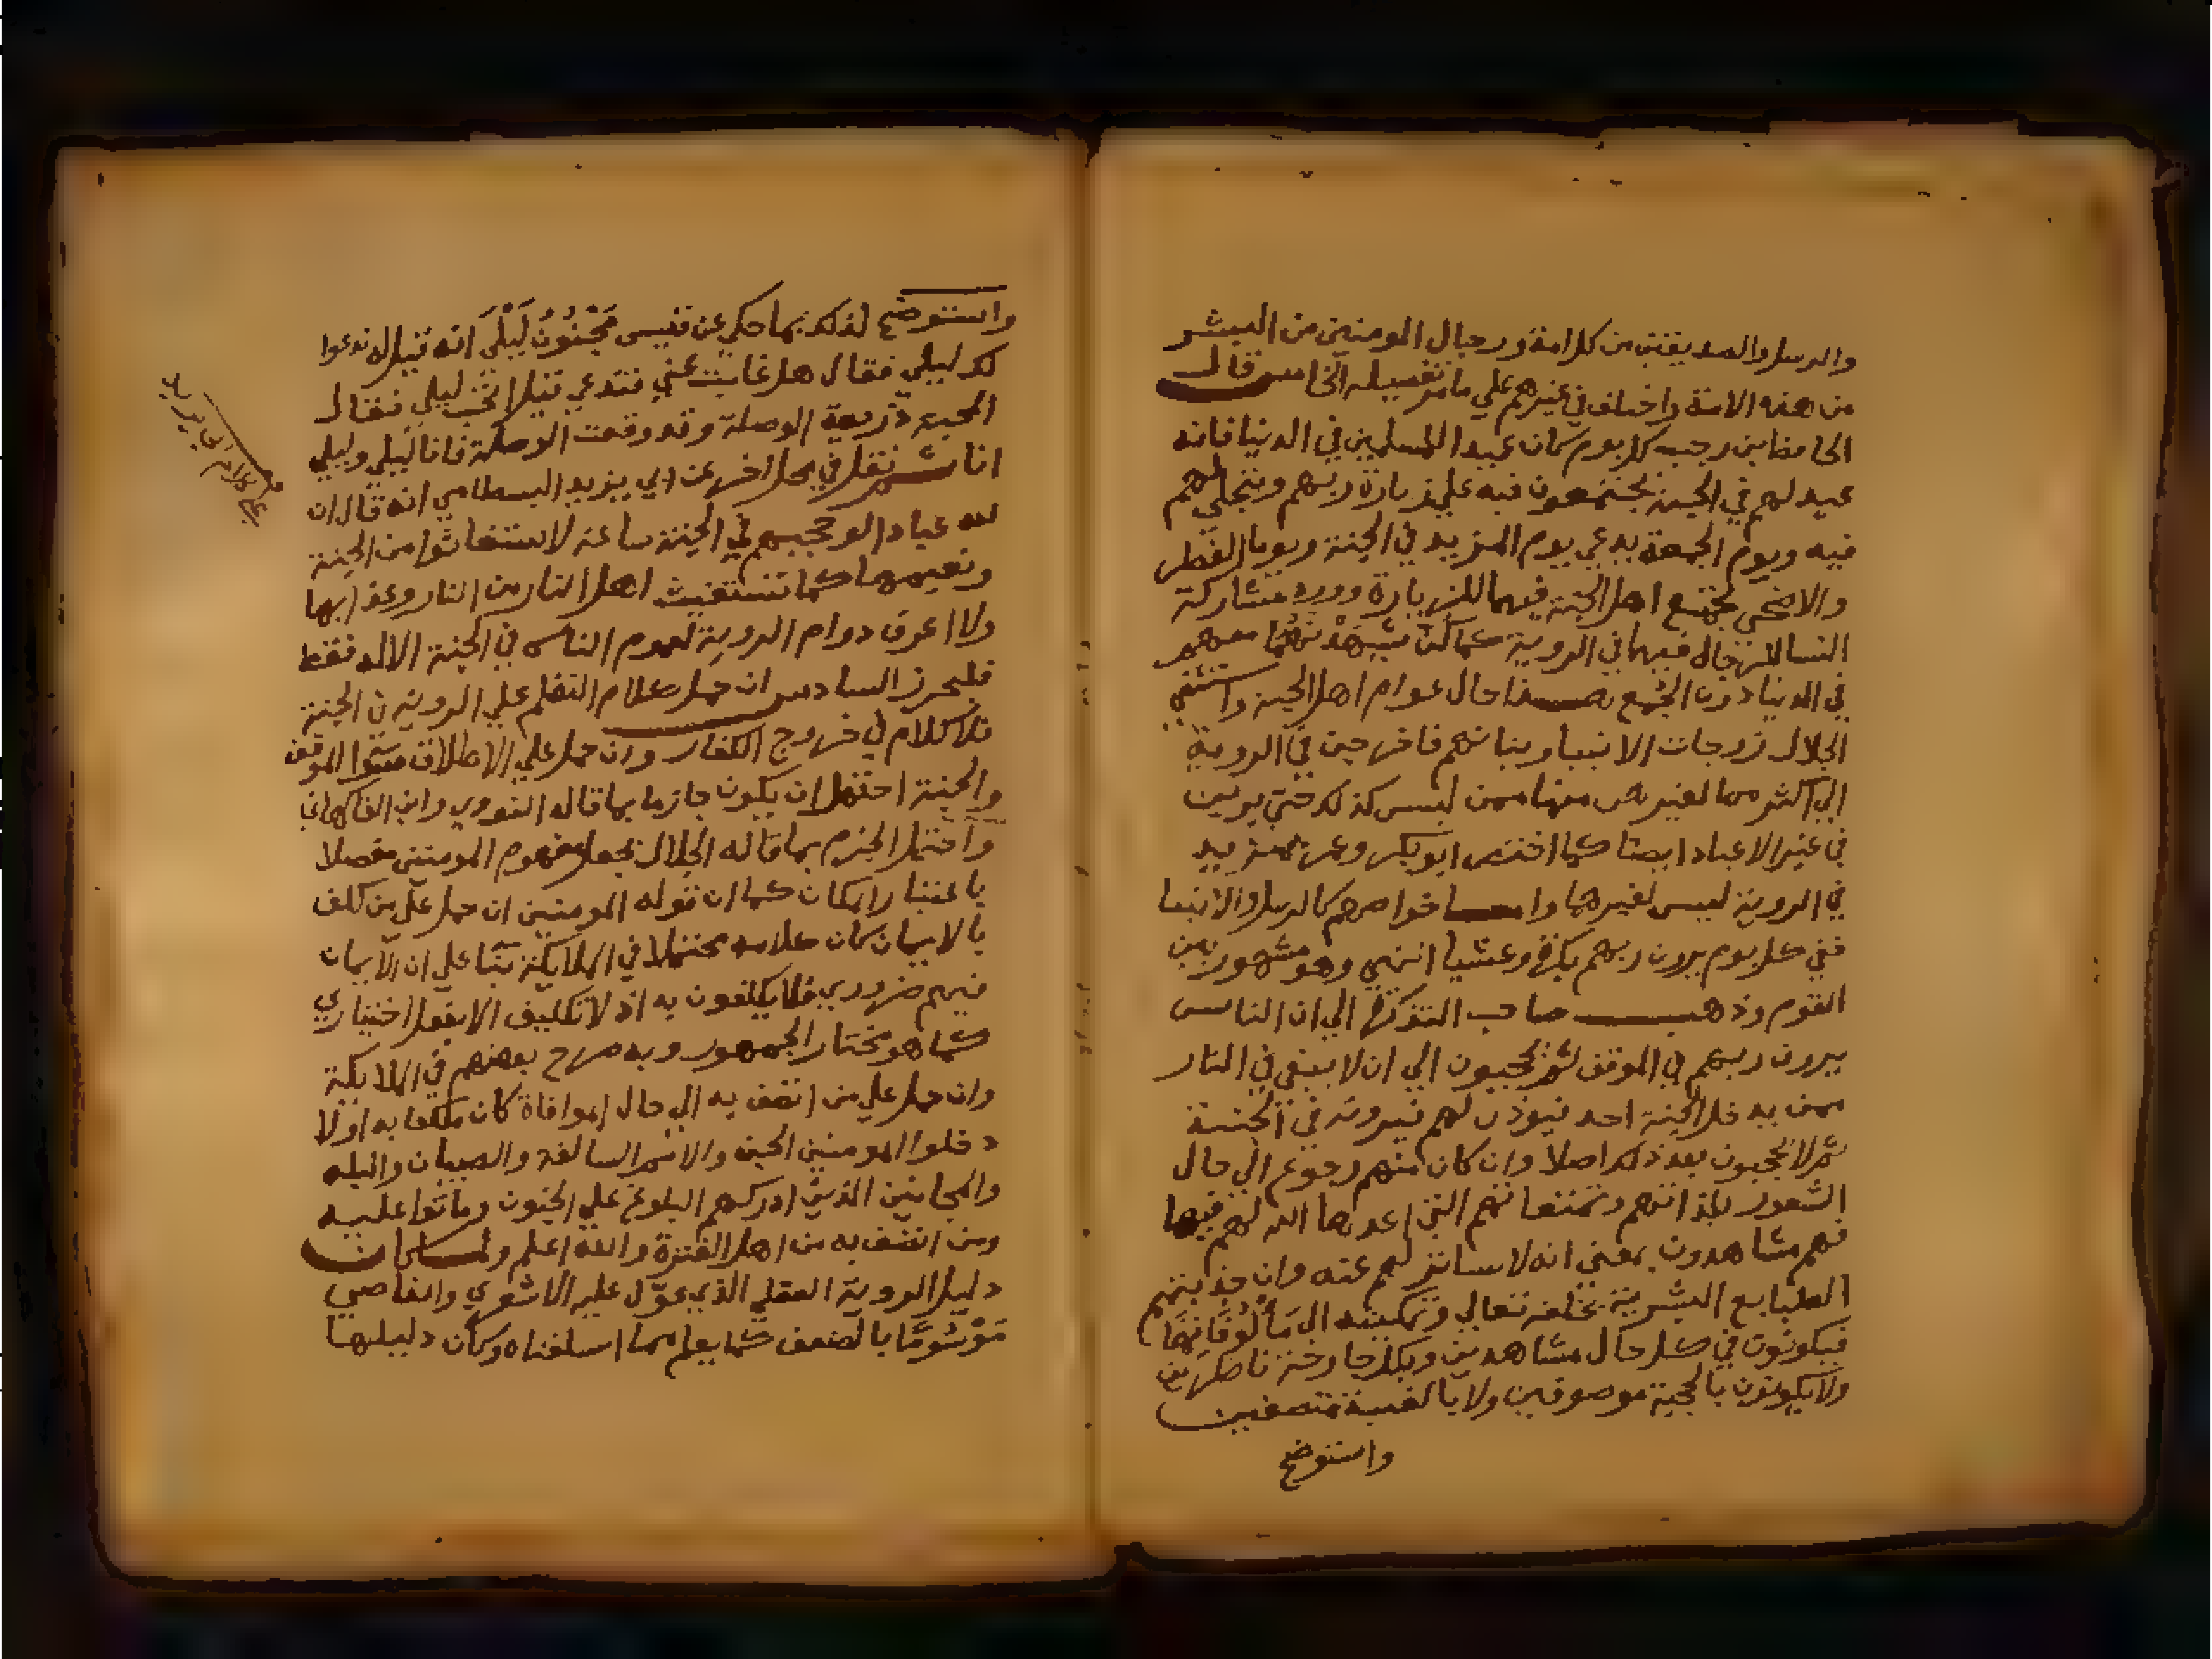 والرسل والصديقين من كل امة ورجال المومنين من البشر
من هذه الامة واختلف في غيرهم علي ما مر تفصيله الخامس قال
الحافظ ابن رجب كل يوم كان عيدا للمسلمين في الدنيا فانه
عيد لهم في الجنة يجتمعون فيه علي زيارة ربهم ويتجلي لهم
فيه ويوم الجمعة يدعي يوم المزيد في الجنة ويوما الفطر
والاضحي يجتمع اهل الجنة فيهما للزيارة وورد مشاركة
النسا للرجال فيهما في الروية كما كن يشهدنهما معهم
في الدنيا دون الجمع فهذا حال عوام اهل الجنة واستثني
الجلال زوجات الانبيا وبناتهم فاخرجهن في الروية
الي اكثر مما لغيرهن منها ممن ليس كذلك حتي يرين
في غير الاعياد ايضا كما اختص ابو بكر وعمر بمزيد
في الروية ليس لغيرهما واما خواصهم كالرسل والانبيا
ففي كل يوم يرون ربهم بكرة وعشيا انتهي وهو مشهور بين
القوم وذهب صاحب التذكرة الي ان الناس
يرون ربهم في الموقف ثم يحجبون الي ان لا يبقي في النار
ممن يدخل الجنة احد فيوذن لهم فيرونه في الجنة
ثم لا يحجبون بعد ذلك اصلا وان كان منهم رجوع الي حال
الشعور بلذاتهم وتمتعاتهم التي اعدها الله لهم فيها
فهم مشاهدون بمعني انه لا ساتر لهم عنه وان جذبتهم
الطبايع البشرية بخلقه تعالي وتمكينه الي مَأْلُوفَاتِهَا
فيكونون في كل حال مشاهدين وبكل جارحة ناظرين
ولا يكونون بالحجبة موصوفين ولا بالغيبة متصفين
واستوضح
واستوضح لذلك بما حكي عن قيس مَجْنُونُ لَيْلَي انه قيل له ندعوا
لك ليلي فقال هل غابت عني فتدعي قيل اتحب ليلي فقال
المحبة ذريعة الوصلة وقد وقعت الوصلة فانا ليلي وليلي
انا ثم نقل في محل اخر عن ابي يزيد البسطامي انه قال ان
لله عبادا لو حجبهم في الجنة ساعة لاستغاثوا من الجنة
ونعيمها كما تستغيث اهل النار من النار وعذابها
ولا اعرف دوام الروية لعموم الناس في الجنة الا له فقط
فليحرز السادس ان حمل كلام النظم علي الروية في الجنة
فلا كلام في خروج الكفار وان حمل علي الاطلاق سوا الموقف
والجنة احتمل ان يكون جازما بما قاله النووي وابن الفاكهاني
واحتمل الجزم بما قاله الجلال بجعل مفهوم المومنين مفصلا
باعتبار امكان كما ان قوله المومنين ان حمل علي من كلف
بالايمان كان كلامه محتملا في الملايكة بنا علي ان الايمان
فيهم ضروري فلا يكلفون به اذ لا تكليف الا بفعل اختياري
كما هو مختار الجمهور وبه صرح بعضهم في الملايكة
وان حمل علي من اتصف به الي حال الموافاة كان مكلفا به اولا
دخلوا المومنين الجن والامم السالفة والصبيان والبله
والمجانين الذين ادركهم البلوغ علي الجنون وماتوا عليه
ومن اتصف به من اهل الفترة والله اعلم ولما كان
دليل الروية العقلي الذي عوّل عليه الاشعري والقاضي
مَوْسُومًا بالضعف كما يعلم مما اسلفناه وكان دليلها